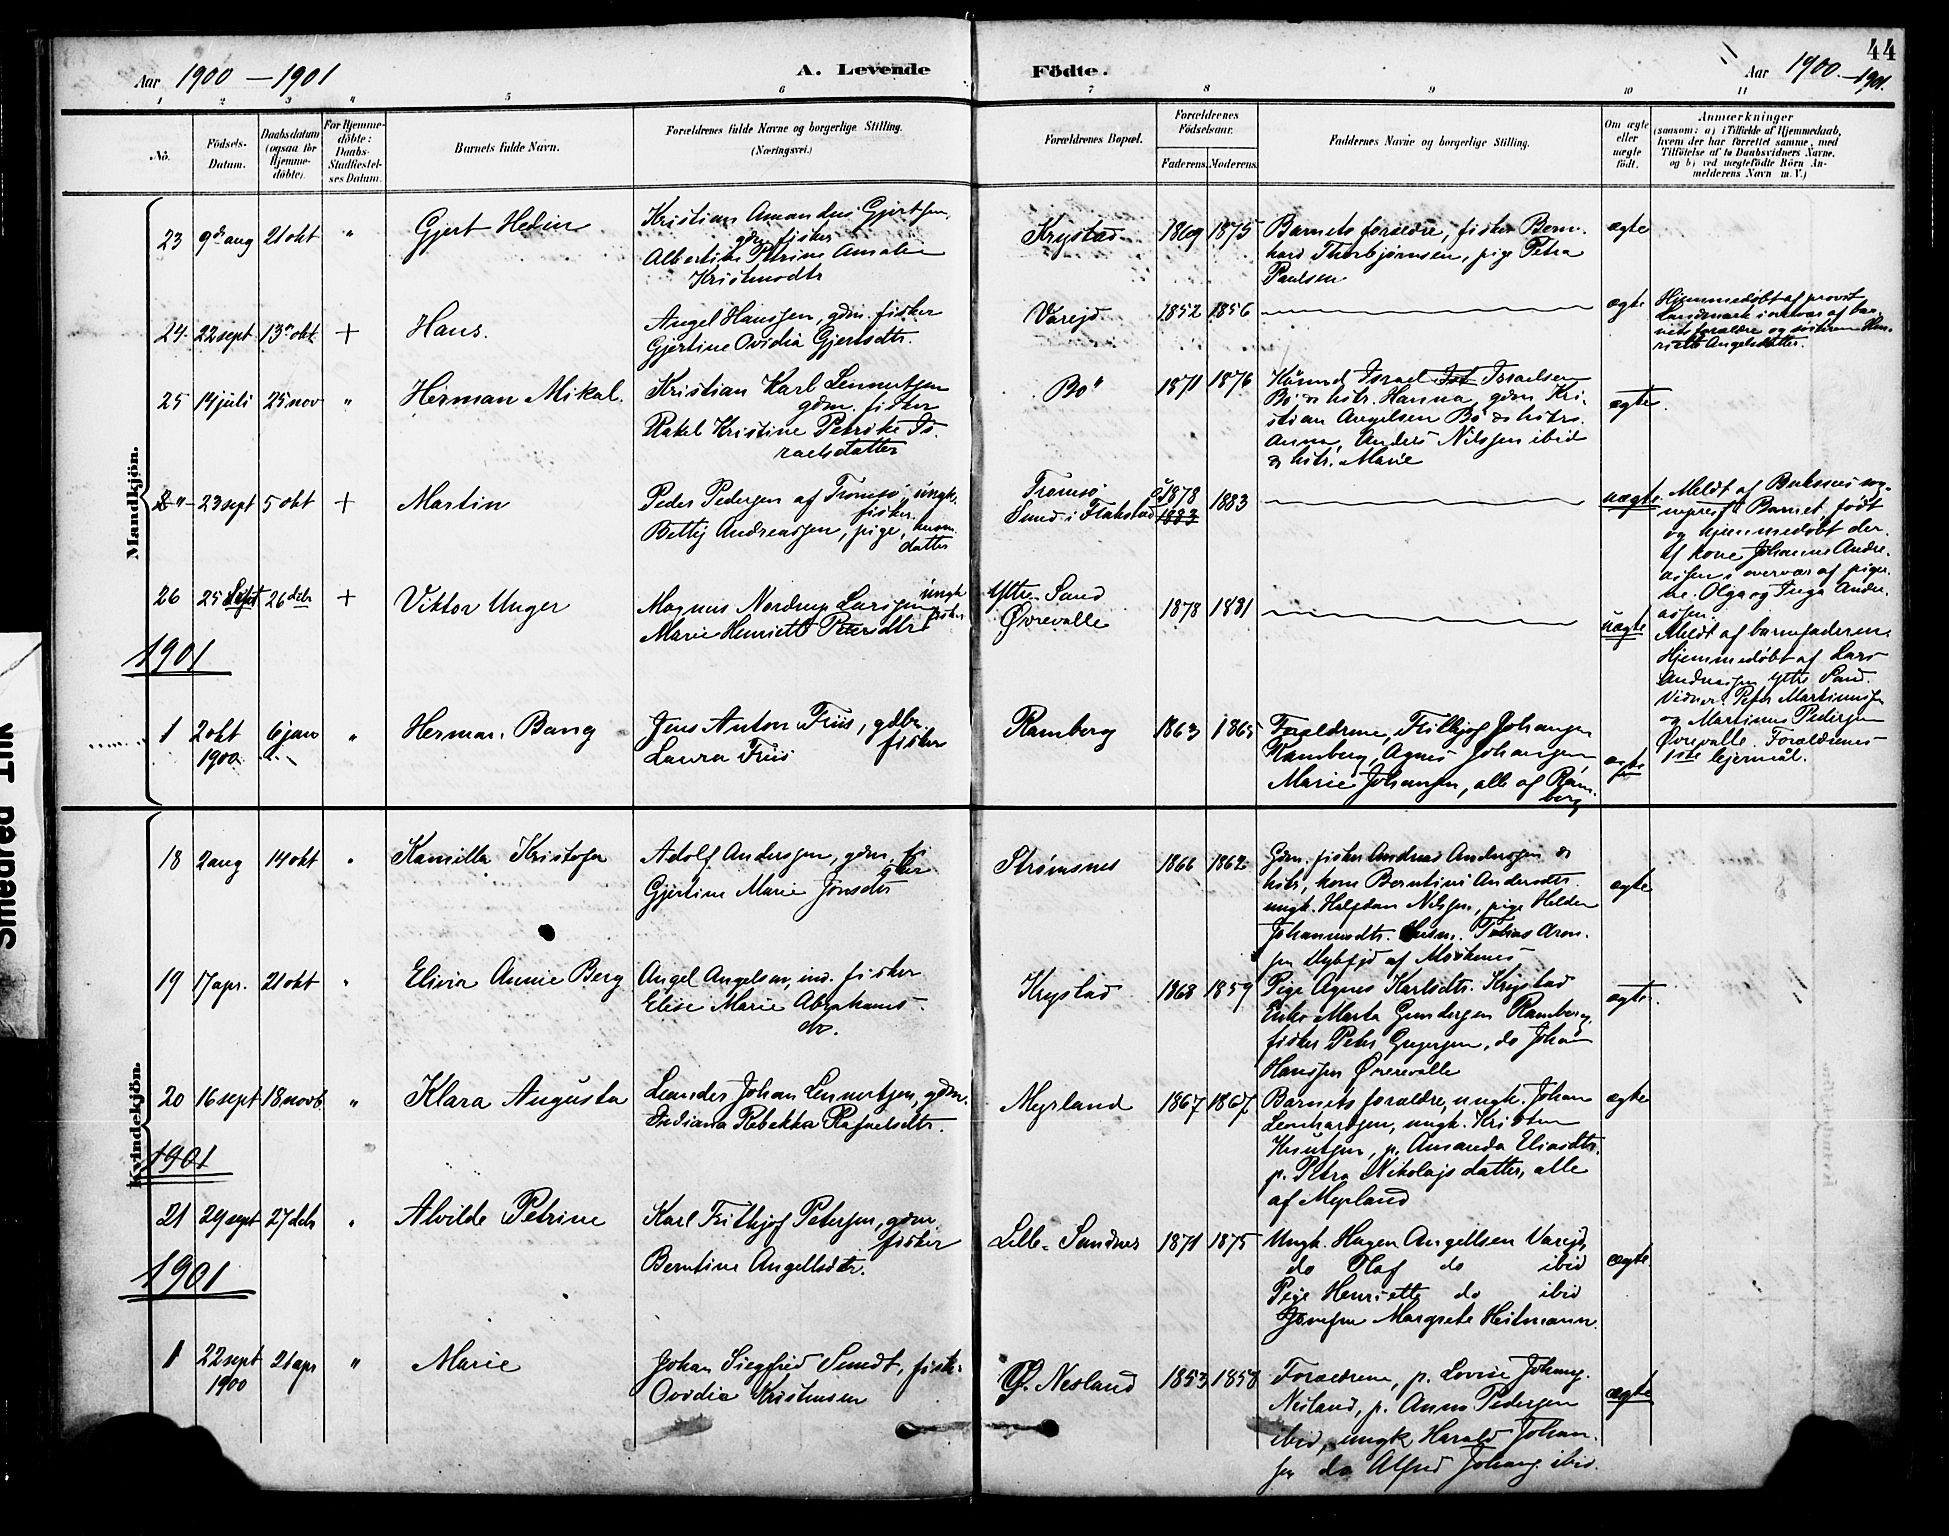 44
Aar 1900 — 1901
A. Levende Födte.
Aar 1900 — 1901.
1 2 3 4 5 6 7 8 9 10 11
No.
Födsels-Datum.
Daabsdatum (ogsaa for Hjemme-döbte).
For Hjemme-döbte: Daabs-Stadfæstel-ses Datum.
Barnets fulde Navn.
Forældrenes fulde Navne og borgerlige Stilling. (Næringsvei.)
Forældrenes Bopæl.
Forældrenes Födselsaar.
Faderens. Moderens.
Faddernes Navne og borgerlige Stilling.
Om ægte eller uægte födt.
Anmærkninger
(saasom: a) i Tilfælde af Hjemmedaab, hvem der har forrettet samme, med Tilföielse af to Daabsvidners Navne, og b) ved uegtefödte Börn An-melderens Navn m. V.)
Mandkjön.
23 9de aug 21 okt " Gjert Hedin
Kristian Amandus Gjertsen,
gdm. fisker
Petrine Amalie
Krystad 1869 1875
Barnets forældre, fisker Bern-
hard Thorbjørnsen, pige Petra
Paulsen
ægte
24. 22 sept 13de okt + Hans.
Angel Hanssen, gdm. fisker
Gjertine Ovidia Gjertsdtr.
Varejd 1852 1856
ægte
Hjemmedøbt af provst
Landmark i overvær af bar-
nets forældre og søsteren Hen-
riette Angelsdatter.
25 14 juli 25 nov " Herman Mikal.
Kristian Karl Lennertsen
gdm. fisker
Rakel Kristine Petrike Is-
raelsdatter
Bø 1871 1876
Israel Israelsen
Bø & hstr. Hanna, gdm Kri-
stian Angelsen Bø & hstr.
Anna, Anders Nilssen ibid
& hstr. Marie
ægte.
" 23 sept 5 okt + Martin
Peder Pedersen af Tromsø, ungk.
fisker.
Betty Andreassen, pige,
datter
Tromsø
Sund i Flakstad
1878 1883
1883
uægte
Meldt af Buksnes sog-
neprest. Barnet født
og hjemmedøbt der
af kone Johanne Andre-
asen i overvær af piger-
ne Olga og Inga Andre-
assen.
26 25 Sept 26 debr + Viktor Unger
Magnus Nordrup Larssen ungk
fisker
Marie Henriette Petersdtr
Yttre Sand
Øvrevolle
1878 1881
uægte
Meldt af barnefaderen.
Hjemmedøbt af Lars
Andreassen Yttre Sand.
Vidner: Peter Martinussen
og Martinus Pedersen
Øvrevolle. Forældrenes
1ste lejermål.
1901
1 2 okt 1900 6 jan " Herman Bang
Jens Anton Friis, gdbr.
fisker
Laura Friis
Ramberg 1863 1865
Forældrene, Fritjof Johansen
Ramberg, Agnes Johansen,
Marie Johansen, alle af Ram-
berg
ægte
Kvindekjön.
18 2 aug 14 okt " Kamilla Kristofa
Adolf Anderssen, gdm. fi-
sker
Gjertine Marie Jonsdtr
Strømsnes 1866 1862
Gdm. fisker Andreas Anderssen &
hstr, kone Berntine Andersdtr.
ungk. Halfdan Nilssen, pige Helda
Johannesdtr. Tobias Aron-
sen
ægte
19 17 apr. 21 okt " Elivia Annie Berg
Angel Angelsen, ind. fisker
Elise Marie Abrahams-
dtr.
Krystad 1868 1859
Pige Agnes Karlsdtr. Krystad
Enke Marta Gundersen Ramberg,
fisker Peter Gregersen, do Johan
Hanssen Øvrevolle
ægte.
20 16 sept 18 novb. " Klara Augusta
Leander Johan Lennertsen, gdm.
Indiana Rebekka Rafaelsdtr.
Myrland 1867 1867
Barnets forældre, ungk. Johan
Leonhardsen, ungk. Kristen
Knutsen, p. Amanda Eliasdtr.
p. Petra Nikolajsdatter, alle
af Myrland
ægte
1901
21 29 sept 27 debr " Alvilde Petrine
Karl Fritjof Petersen, gdm
fisker
Berntine Angellsdtr.
Lille-Sandnes 1871 1875
Ungk. Hagen Angellsen Varejd,
do Olaf do ibid
Pige Henriette do ibid
Margrete Heitmann.
ægte
1901
1 22 sept 1900 21 apr " Marie
Johan Siegfred Sundt, fisk.
Ovidia Kristensen
Ø. Nesland 1853 1858
Forældrene, p. Lovise Johans.
Nesland, p. Anna Pedersen
ibid, ungk Harald Johan-
sen do Alfred Johans. ibid.
ægte